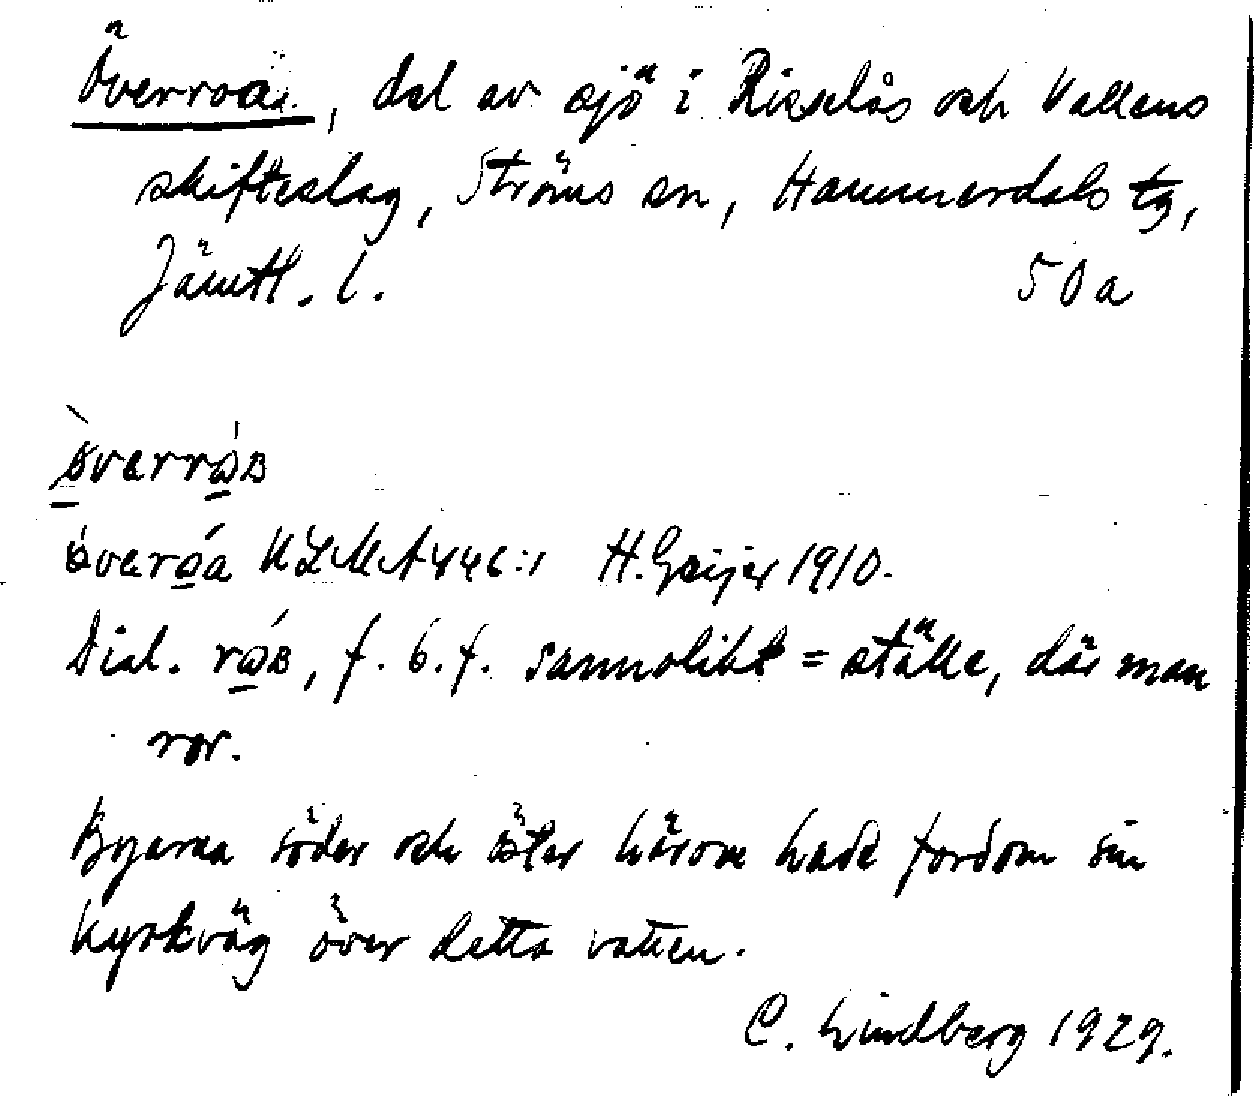 Överroa, del av sjö i Risselås och Vallens
skifteslag, Ströms sn, Hammerdals tg,
Jämtl. l. 50a
överrωʙ
överωa ULMA 446:1 H. Geijer 1910.
Dial. rωʙ, f. b.f. sannolikt = ställe, där man
ror.
Byarna söder och öster härom hade fordom sin
kyrkväg över detta vatten.
C. Lindberg 1929.